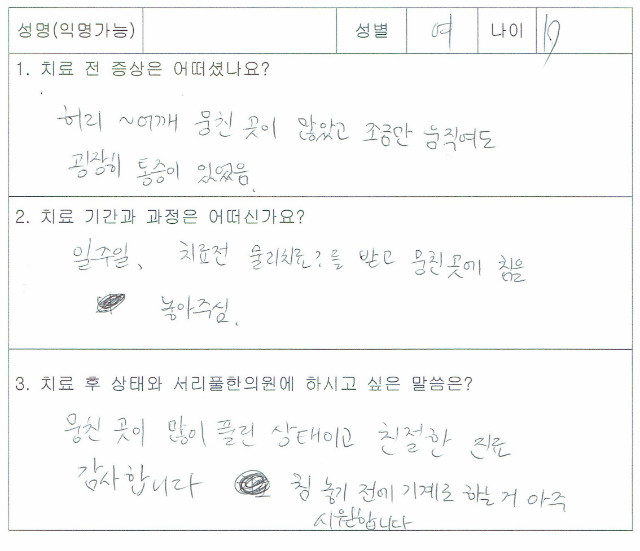 성명(익명가능) 성별 여 나이 19
1. 치료 전 증상은 어떠셨나요?
허리 ~어깨 뭉친 곳이 많았고 조금만 움직여도
굉장히 통증이 있었음.
2. 치료 기간과 과정은 어떠신가요?
일주일, 치료전 물리치료?를 받고 뭉친곳에 침을
놓아주심.
3. 치료 후 상태와 서리풀한의원에 하시고 싶은 말씀은?
뭉친 곳이 많이 풀린 상태이고 친절한 진료
감사합니다 침 놓기 전에 기계로 하는 거 아주
시원합니다